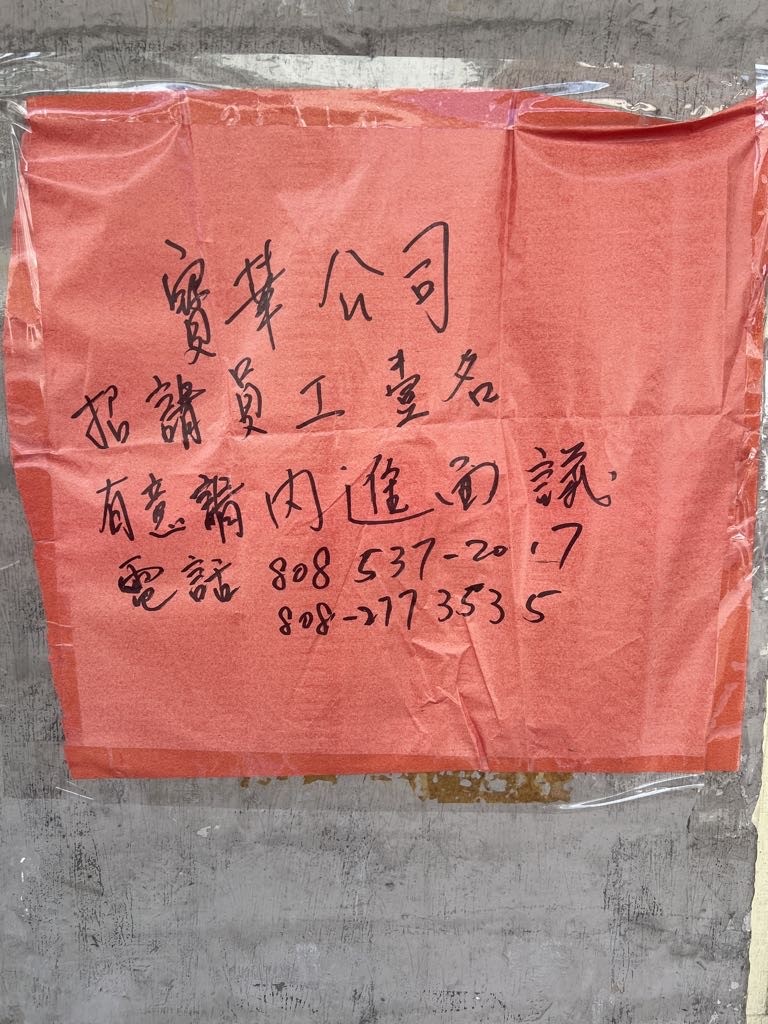 寶華公司
招請員工壹名
有意請內進面議
電話 808 537-2017
808-277 3535